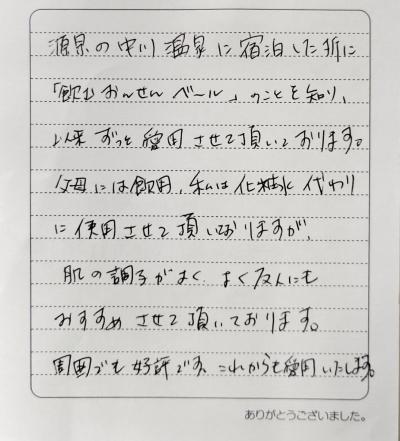 源泉の中川温泉に宿泊した折に
「飲むおんせんベール」のことを知り、
以来ずっと愛用させて頂いております。
父母には飲用、私は化粧水代わり
に使用させて頂いおりますが、
肌の調子がよく よく友人にも
おすすめさせて頂いております。
周囲でも好評です、これからも愛用いたします。
ありがとうございました。